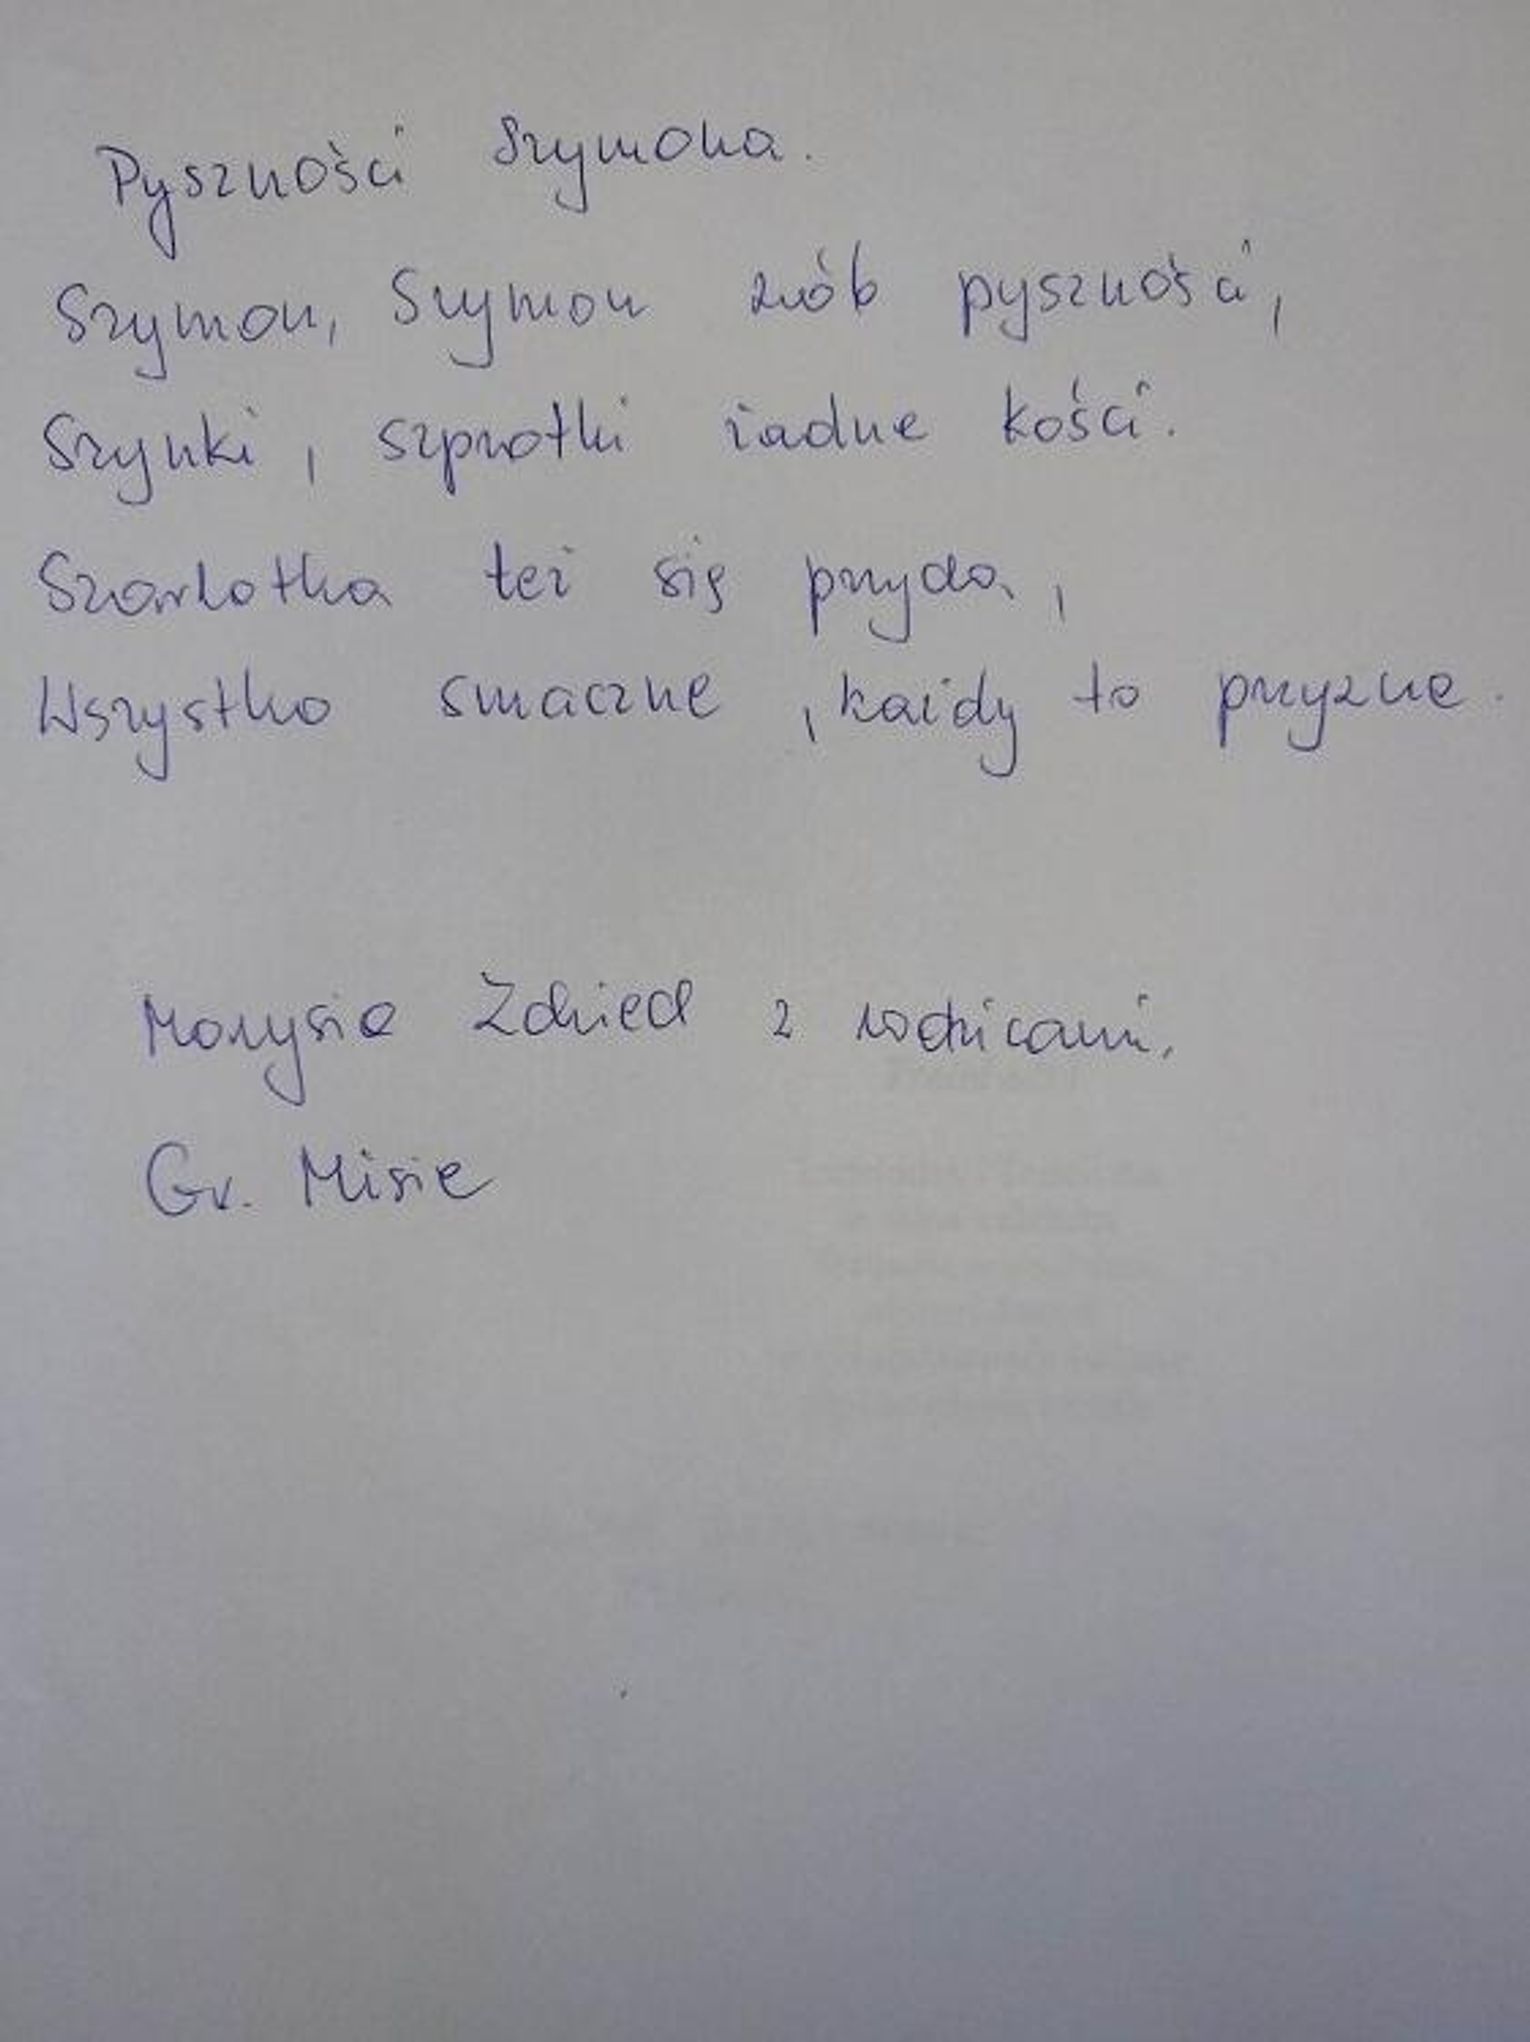 Pyszności Szymona.
Szymon, Szymon zrób pyszności,
Szynki, szprotki żadne kości.
Szarlotka też się przyda,
Wszystko smaczne, każdy to przyzna.
Marysia z rodzicami.
Gr. Misie